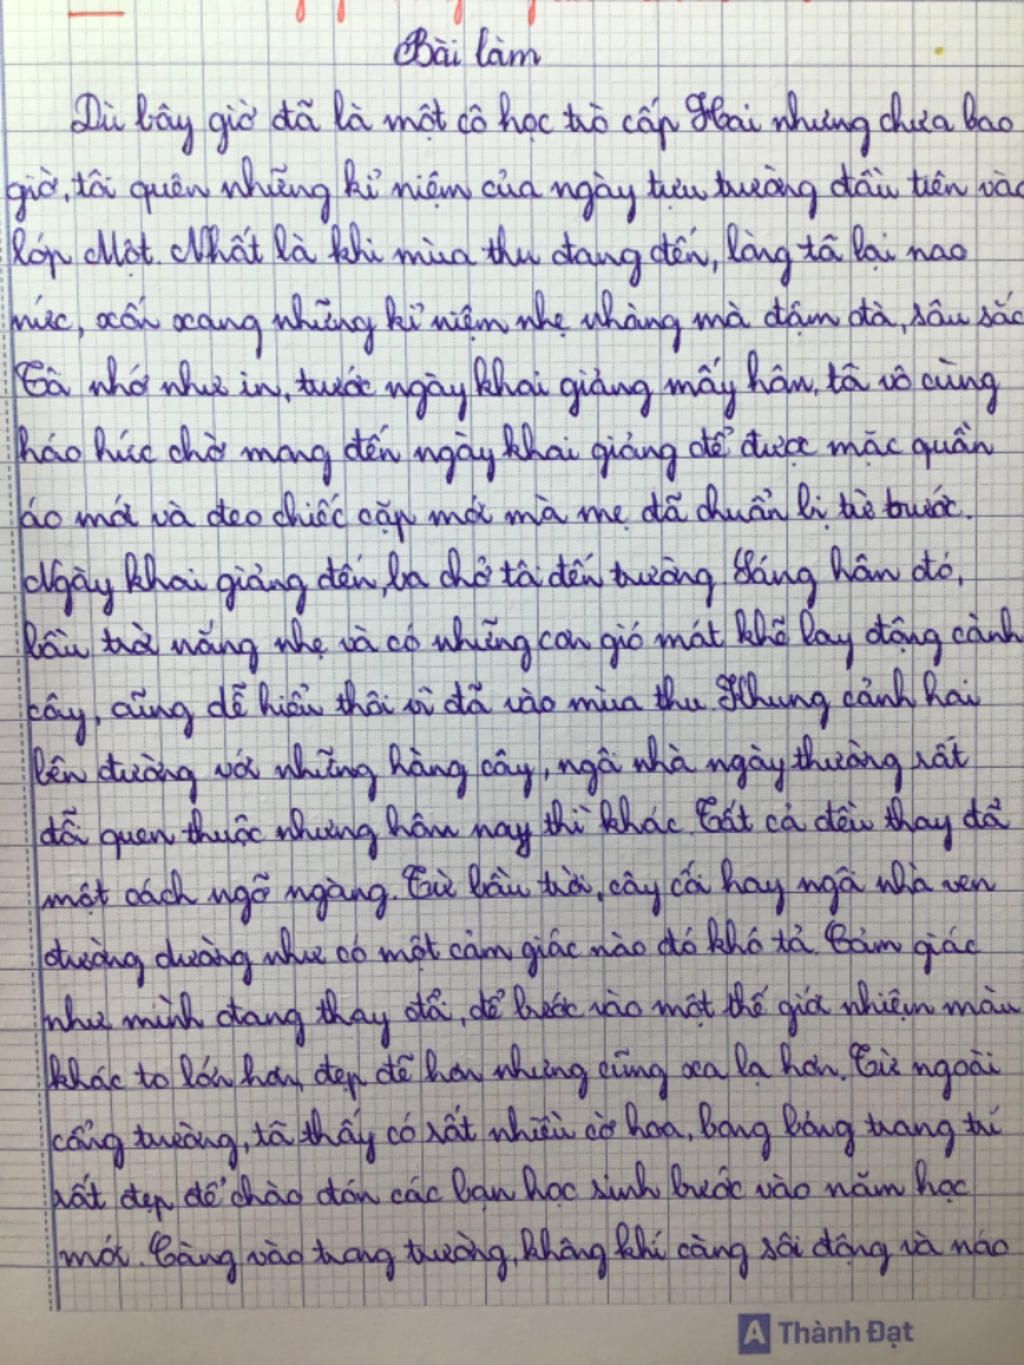 Bài làm
Dù bây giờ đã là một cô học trò cấp Hai nhưng chưa bao
giờ, tôi quên những kỉ niệm của ngày tựu trường đầu tiên vào
lớp Một. Nhất là khi mùa thu đang đến, lòng tôi lại nao
nức, xốn xang những kỉ niệm nhẹ nhàng mà đậm đà, sâu sắc
Tôi nhớ như in, trước ngày khai giảng mấy hôm, tôi vô cùng
háo hức chờ mong đến ngày khai giảng để được mặc quần
áo mới và đeo chiếc cặp mới mà mẹ đã chuẩn bị từ trước.
Ngày khai giảng đến, ba chở tôi đến trường. Sáng hôm đó,
bầu trời nắng nhẹ và có những cơn gió mát khẽ lay động cành
cây, cũng dễ hiểu thôi vì đã vào mùa thu. Khung cảnh hai
bên đường với những hàng cây, ngôi nhà ngày thường rất
đỗi quen thuộc nhưng hôm nay thì khác. Tất cả đều thay đổi
một cách ngỡ ngàng. Từ bầu trời, cây cối hay ngôi nhà ven
đường dường như có một cảm giác nào đó khó tả. Cảm giác
như mình đang thay đổi, để bước vào một thế giới nhiệm màu
khác to lớn hơn, đẹp đẽ hơn nhưng cũng xa lạ hơn. Từ ngoài
cổng trường, tôi thấy có rất nhiều cờ hoa, bong bóng trang trí
rất đẹp để chào đón các bạn học sinh bước vào năm học
mới. Càng vào trong trường, không khí càng sôi động và náo
A Thành Đạt